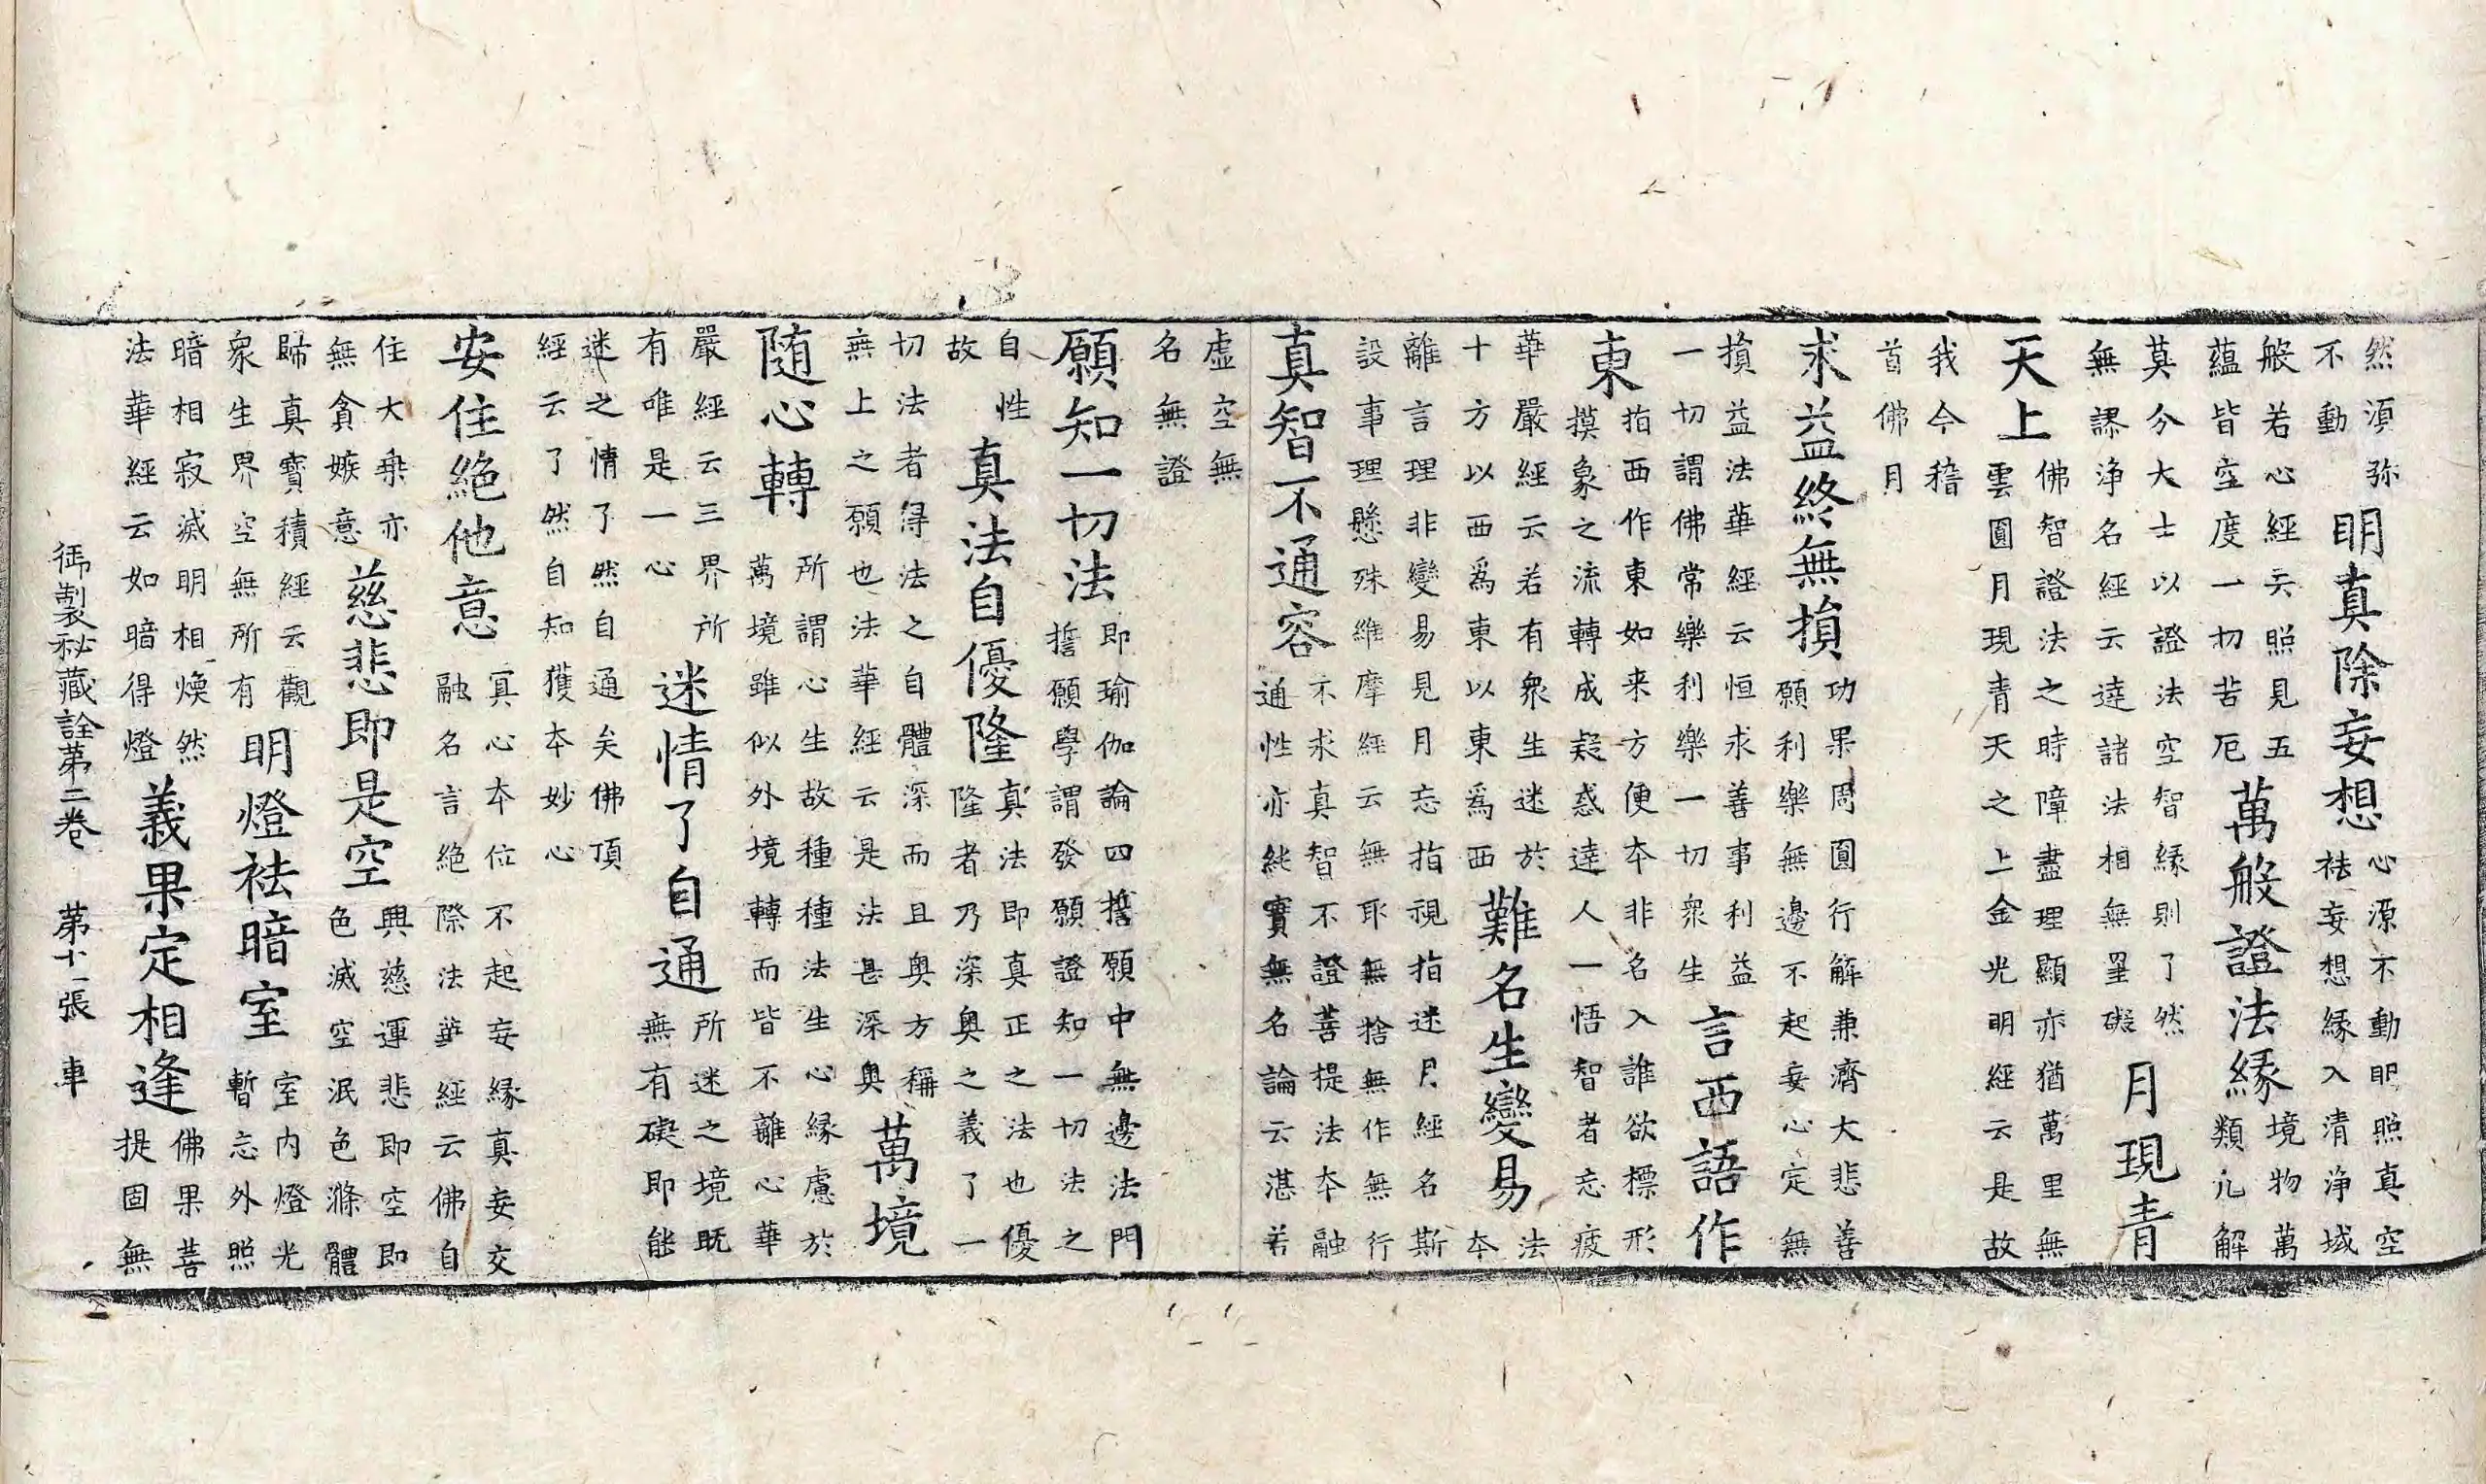 然湏弥
不動
明真除妄想
心源不動即照真空
袪妄想縁入清浄域
般若心經云照見五
蘊皆空度一切苦厄
萬般證法縁
境物萬
類凢解
莫分大士以證法空智縁則了然
無謬浄名經云達諸法相無罣礙
月現青
天上
佛智證法之時障盡理顯亦猶萬里無
雲圓月現青天之上金光明經云是故
我今稽
首佛月
求益終無損
功果周圓行解兼濟大悲善
願利樂無邊不起妄心定無
損益法華經云恒求善事利益
一切謂佛常樂利樂一切衆生
言西語作
東
指西作東如来方便本非名入誰欲標形
摸象之流轉成疑惑達人一悟智者忘疲
華嚴經云若有衆生迷於
十方以西爲東以東爲西
難名生變易
法
本
離言理非變易見月忘指視指迷月經名斯
設事理懸殊維摩經云無耶無捨無作無行
真智不通容
不求真智不證菩提法本融
通性亦純實無名論云湛若
虛空無
名無證
願知一切法
即瑜伽論四擔願中無邊法門
誓願學謂發願證知一切法之
自性
故
真法自優隆
真法即真正之法也優
隆者乃深奥之義了一
切法者得法之自體深而且奥方稱
無上之願也法華經云是法甚深奥
萬境
随心轉
所謂心生故種種法生心縁慮於
萬境雖似外境轉而皆不離心華
嚴經云三界所
有唯是一心
迷情了自通
所迷之境既
無有礙即能
迷之情了然自通矣佛頂
經云了然自知獲本妙心
安住絶他意
真心本位不起妄縁真妄交
融名言絶際法華經云佛自
住大乗亦
無貪嫉意
慈悲即是空
興慈運悲即空即
色滅空泯色滌體
歸真寳積經云觀
衆生界空無所有
明燈袪暗室
室内燈光
暫忘外照
暗相寂滅明相煥然
法華經云如暗得燈
義果定相逢
佛果菩
提固無
御製秘藏詮第二巻 第十一張 車